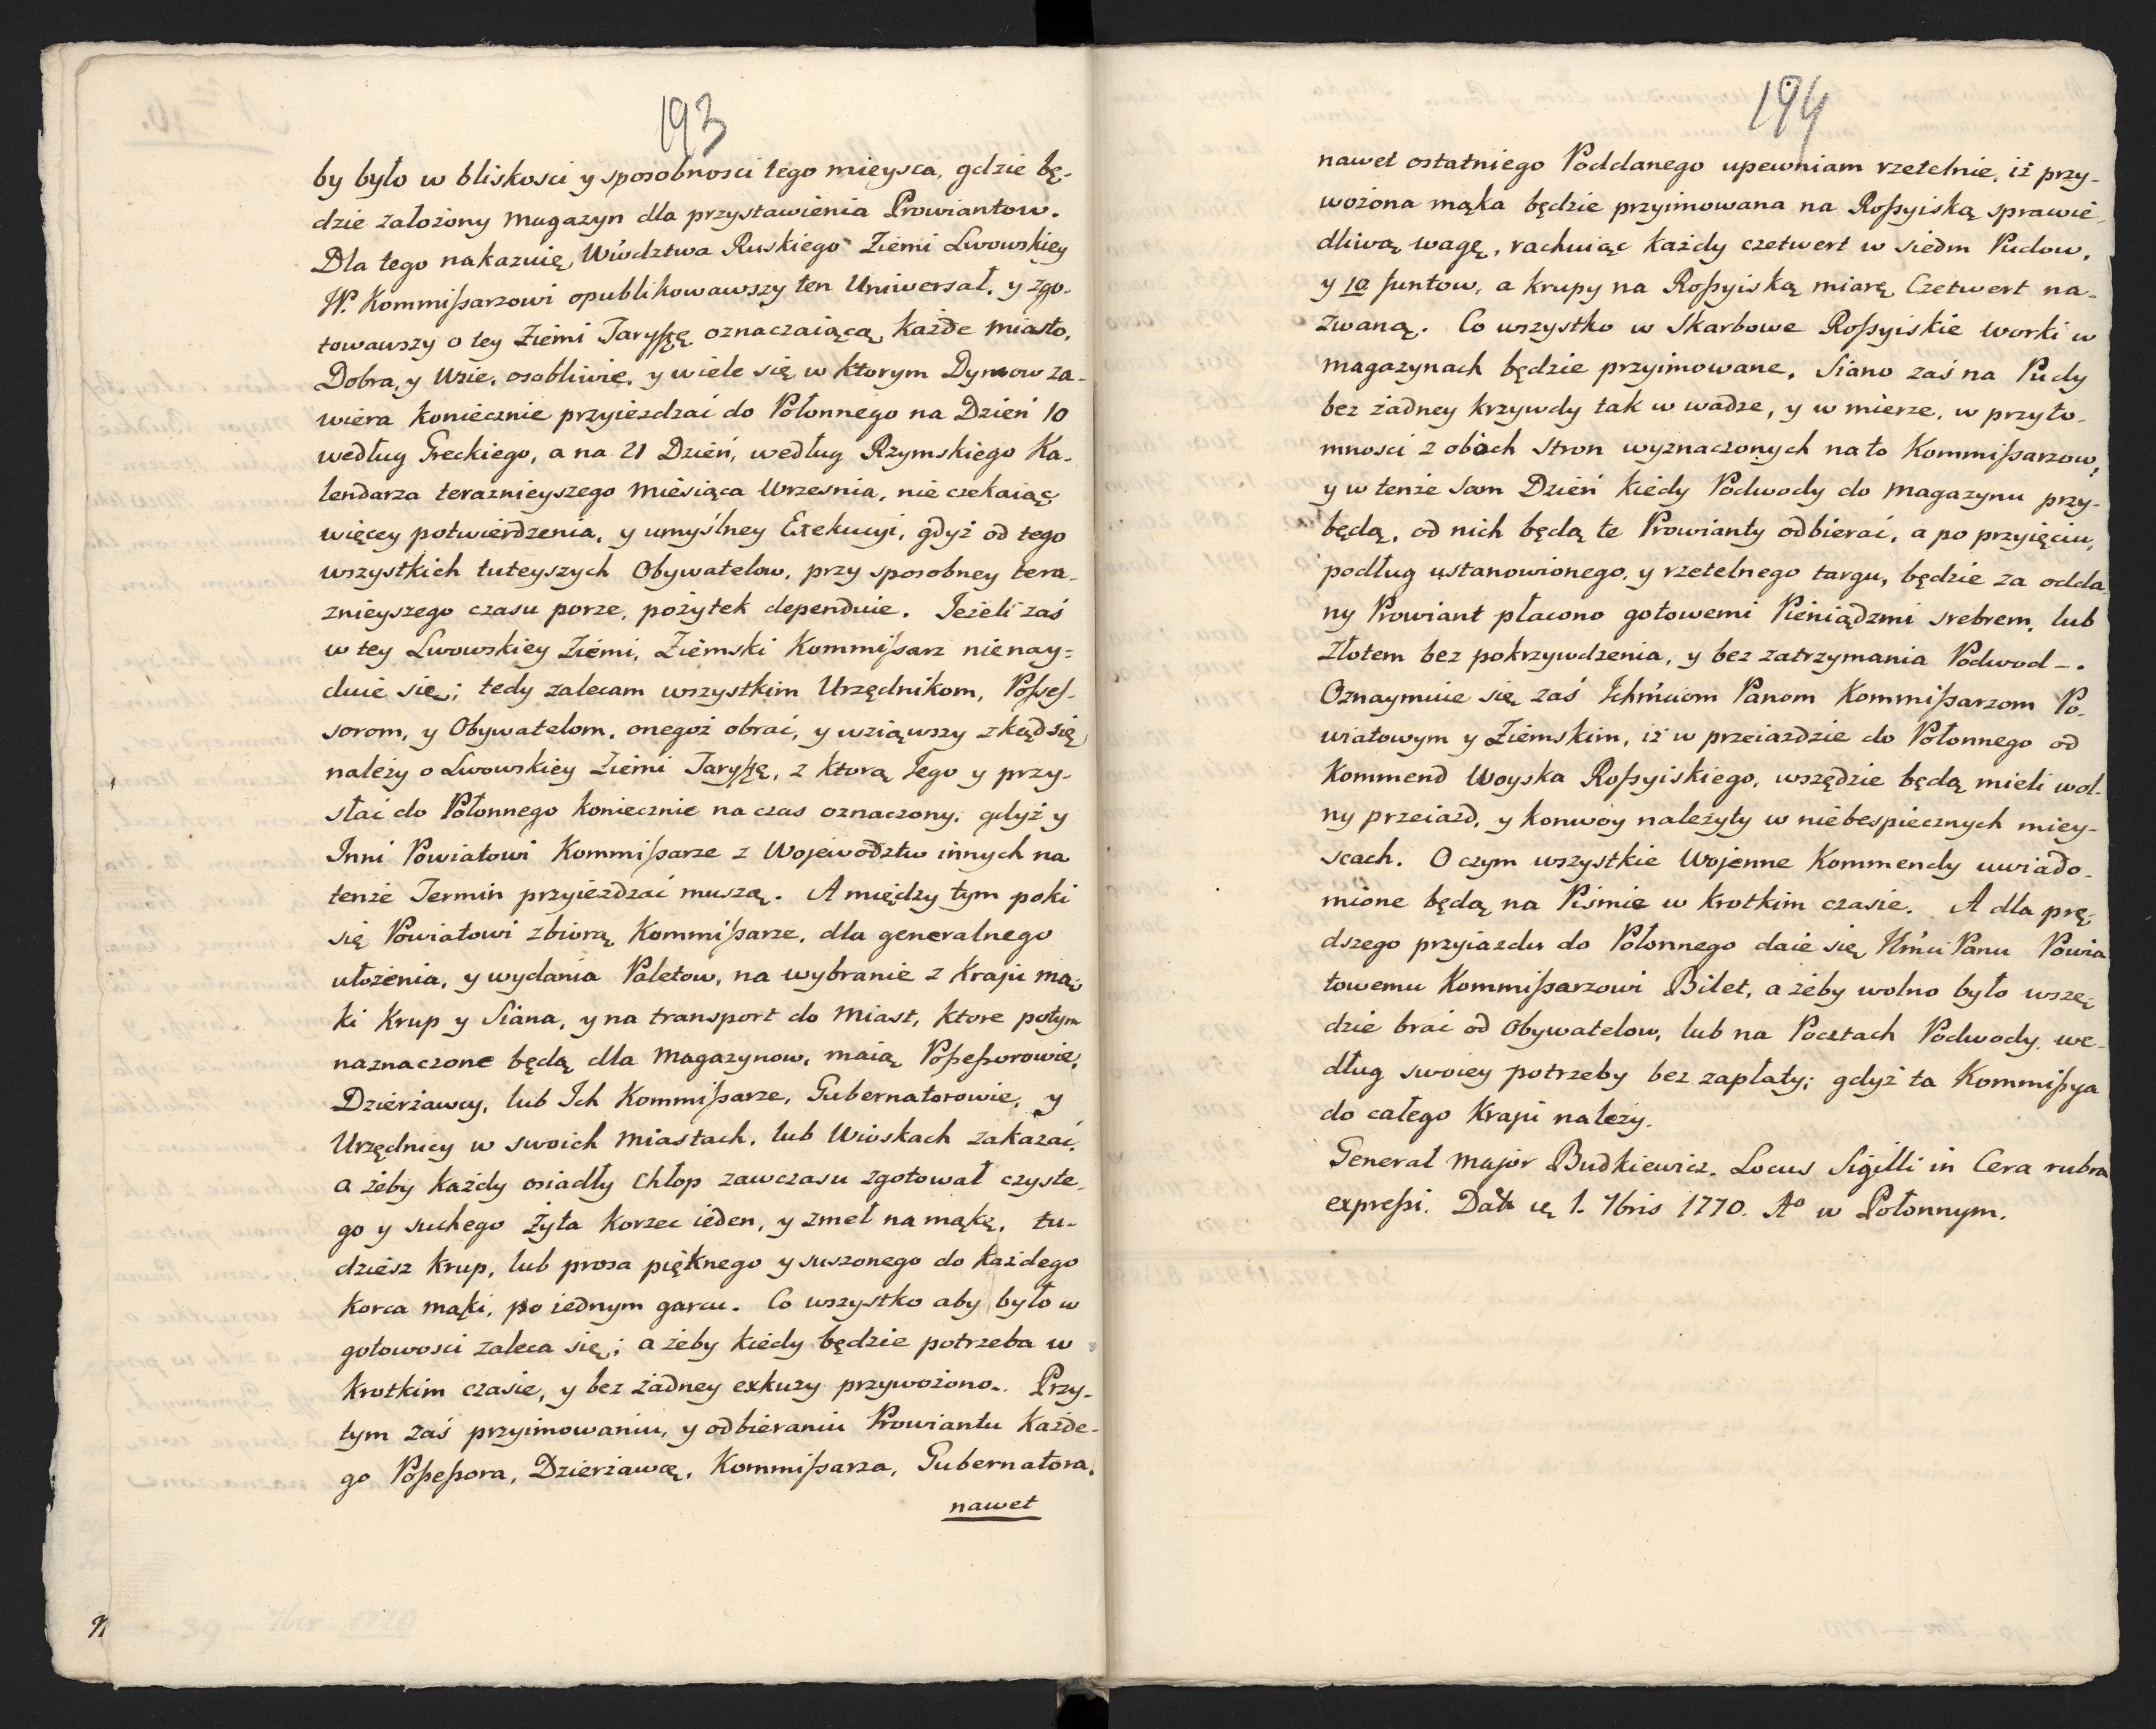 193
by było w bliskosci y sposobnosci tego mieysca, gdzie bę-
dzie założony Magazyn dla przystawienia Prowiantow.
Dla tego nakazuię Wiwdztwa Ruskiego Ziemi Lwowskiey
W. Kommißarzowi opublikowawszy ten Uniwersał, y zgo-
towawszy o tey Ziemi Taryffę oznaczaiącą każde Miasto,
Dobra, y Wsie, osobliwie, y wiele się w ktorym Dymow za-
wiera koniecznie przyiezdzać do Połonnego na Dzień 10
według Greckiego, a na 21 Dzień, według Rzymskiego Ka-
lendarza teraznieyszego Miesiąca Wrzesnia, nie czekaiąc
więcey potwierdzenia, y umyślney Exekucyi, gdyż od tego
wszystkich tuteyszych Obywatelow, przy sposobney tera-
znieyszego czasu porze, pożytek dependuie. Jeżeli zaś
w tey Lwowskiey Ziemi, Ziemski Kommißarz nienay-
duie się; tedy zalecam wszystkim Urzędnikom, Poßes-
sorom, y Obywatelom, onegoż obrać, y wziąwszy zkąd się
należy o Lwowskiey Ziemi Taryffę, z ktorą Jego y przy-
słać do Połonnego koniecznie na czas oznaczony, gdyż y
Inni Powiatowi Kommißarze z Wojewodztw innych na
tenże Termin przyieżdzać muszą. A między tym poki
się Powiatowi zbiorą Kommißarze, dla generalnego
ułożenia, y wydania Paletow, na wybranie z Kraju mą-
ki Krup y Siana, y na transport do Miast, ktore potym
naznaczone będą dla Magazynow, maią Poßeßorowie,
Dzierżawcy, lub Ich Kommißarze, Gubernatorowie, y
Urzędnicy w swoich Miastach, lub Wioskach zakazać,
a żeby każdy osiadły Chłop zawczasu zgotował czyste-
go y suchego Żyta Korzec ieden, y zmeł na mąkę, tu-
dziesz Krup, lub prosa pięknego y suszonego do każdego
Korca mąki, po iednym garcu. Co wszystko aby było w
gotowosci zaleca się; a żeby kiedy będzie potrzeba w
krotkim czasie, y bez żadney exkuzy przywożono. Przy-
tym zaś przyimowaniu, y odbieraniu Prowiantu każde-
go Poßeßora, Dzierżawcę, Kommißarza, Gubernatora,
nawet
194
nawet ostatniego Poddanego upewniam rzetelnie, iż przy-
wożona mąka będzie przyimowana na Roßyiską sprawie-
dliwą wagę, rachuiąc każdy czetwert w siedm Pudow,
y 10 funtow, a krupy na Roßyiską miarę Czetwert na-
zwaną. Co wszystko w Skarbowe Roßyiskie worki w
Magazynach będzie przyimowane, Siano zaś na Pudy
bez żadney krzywdy tak w wadze, y w mierze, w przyto-
mnosci z obóch stron wyznaczonych na to Kommißarzow,
y w tenże sam Dzień kiedy Podwody do Magazynu przy-
będą, od nich będą te Prowianty odbierać, a po przyięciu,
podług ustanowionego, y rzetelnego targu, będzie za odda-
ny Prowiant płacono gotowemi Pieniądzmi srebrem, lub
Złotem bez pokrzywdzenia, y bez zatrzymania Podwod -.
Oznaymuie się zaś Ichmciom Panom Kommißarzom Po-
wiatowym y Ziemskim, iż w przeiazdzie do Połonnego od
Kommend Woyska Roßyiskiego, wszędzie będą mieli wol-
ny przeiazd, y konwoy należyty w niebespiecznych miey-
scach. O czym wszystkie Wojenne Kommendy uwiado-
mione będą na Pismie w krotkim czasie. A dla prę-
dszego przyiazdu do Połonnego daie się Jmci Panu Powia
towemu Kommißarzowi Bilet, a żeby wolno było wszę-
dzie brać od Obywatelow, lub na Pocztach Podwody we-
dług swoiey potrzeby bez zapłaty; gdyż ta Kommißya
do całego Kraju należy.
Generał Major Budkiewicz. Locus Sigilli in Cera rubra
expreßi. Datt 1. 7bris 1770. Ao w Połonnym.